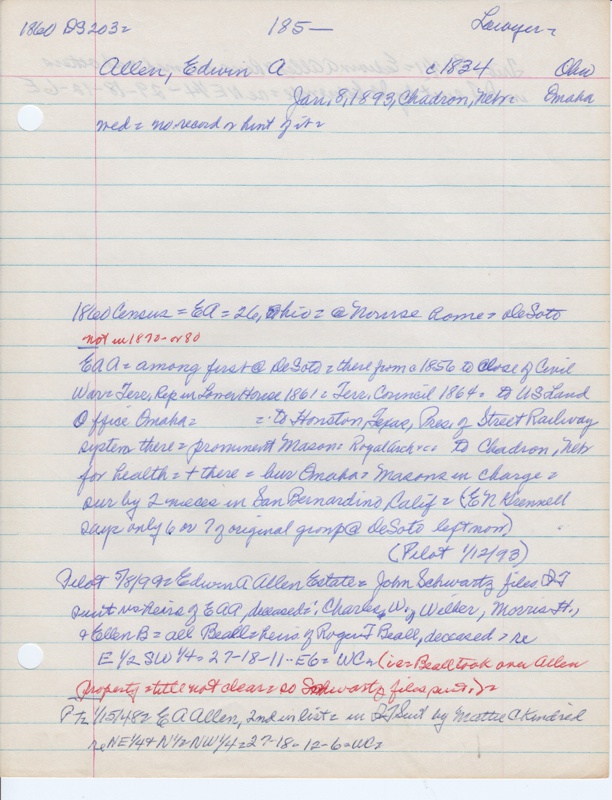 1860 DS203=
185—
Lawyer=
Allen, Edwin A
c1834
Ohio
Jan, 8, 1893, Chadron, Nebr=
Omaha
med = no record or hint of it=
1860 Census = EA = 26, Ohio = @ Nourse Rome = DeSoto
not in 1870- or 80
EAA = among first @ DeSoto = there from c1856 to close of Civil
War = Terr, Rep in Lower House 1861 = Terr, Council 1864 = to US Land
Office Omaha = = to Houston, Texas, Pres, of Street Railway
system there = prominent Mason = Royal Arch +cc to Chadron, Nebr
for health = + there = bur Omaha = Masons in charge =
sur by 2 nieces in San Bernardino, Calif = (E N Grennell
says only 6 or 7 of original group @ DeSoto left now)
(Pilot 1/12/93)
Pilot 5/8/99 = Edwin A Allen Estate = John Schwartz files QT
suit vs heirs of EAA, deceased; Charles W, Wilber, Morris H.,
+ Ellen B = all Beall = heirs of T Beall, deceased = re
E 1/2 SW 1/4 = 27-18-11-E6 = WC = (i e = Beall took over Allen
property = title not clear = so Schwartz files suit,) =
P tr 1/15/48 = E A Allen, 2nd in list = in QT Suit by Mattie C Kindred
re NE 1/4 + N 1/2 NW 1/4 = 27-18-12-6 = WC =